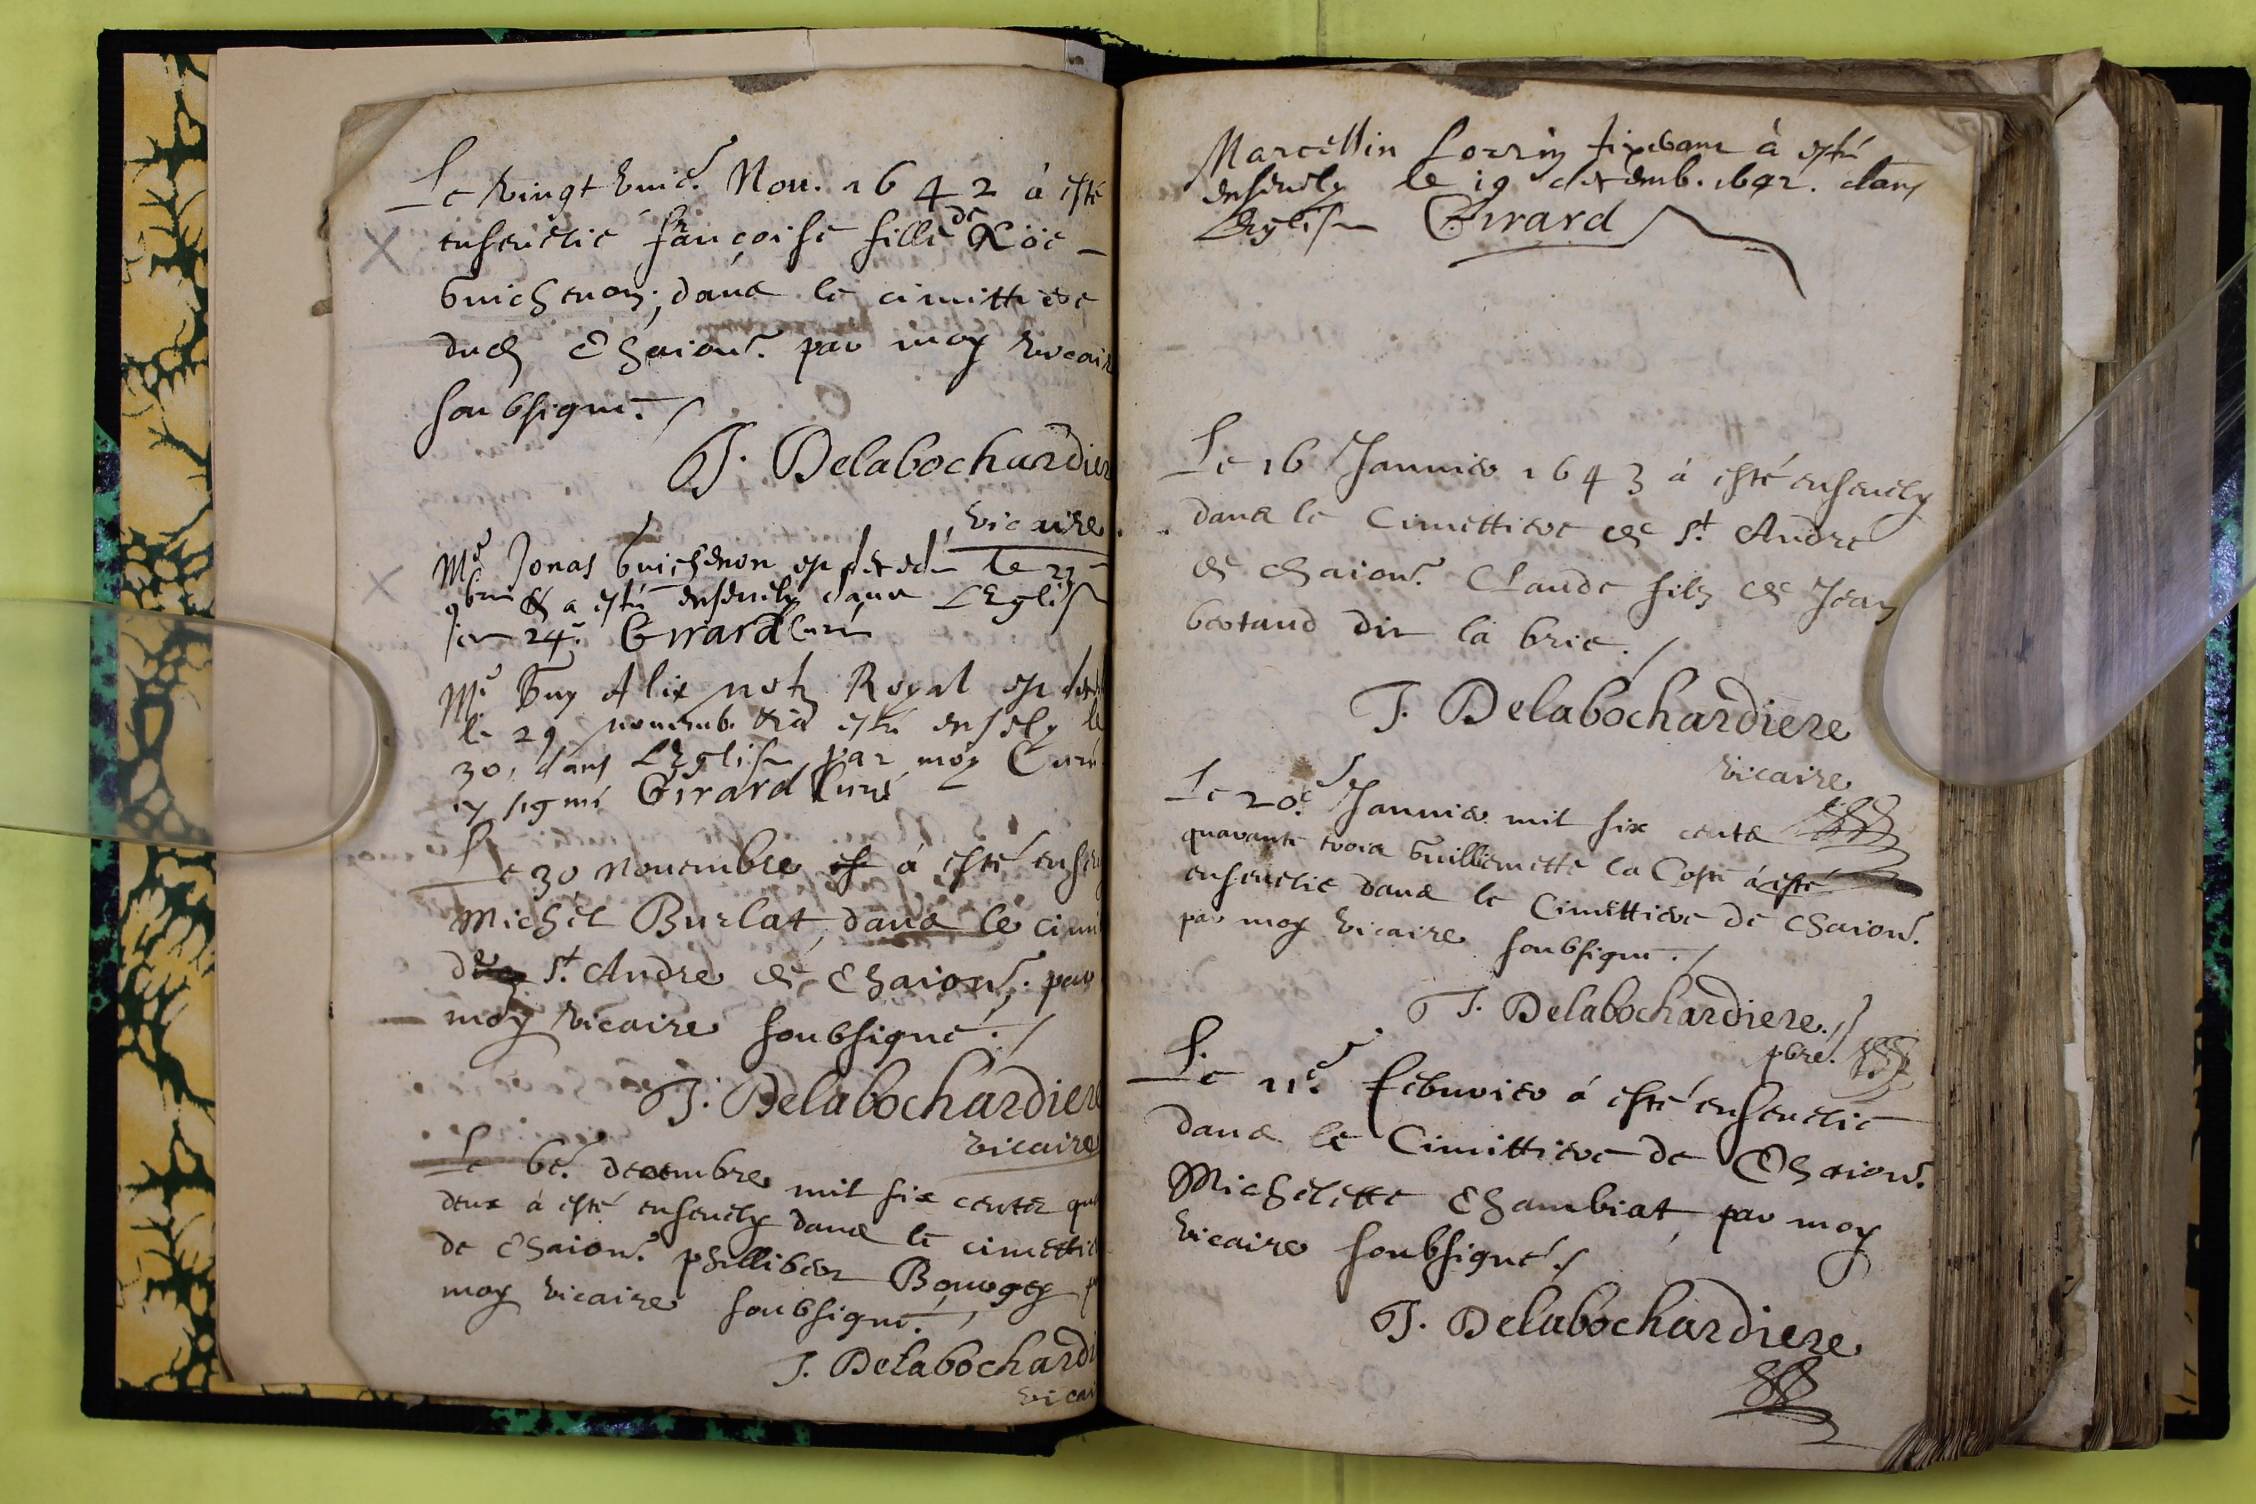 Le vingt unie. Nou. 1642 à esté
enseuelie françoise fille de Noe
Guichenon, dans le cimittiere
dud Chation. par moy vicaire
soubsigné.
J. Delabochardiere
vicaire
Me Jonas Guichenon est decede le 23
9bre & a esté enseuely dans L'Eglise
le 24e Girard Curé
Me Guy Alix not Royal est decede
le 29 nouemb. & a esté ensely le
30, dans L'Eglise par moy Curé
cy signé Girard Curé
Le 30 nouembre à esté enseu
Michel Burlat, dans le cimi
St Andre de Chation. par
moy vicaire soubsigné.
J. Delabochardiere
vicaire
Le 6e. decembre mil six centz qua
deux à esté enseuely dans le cimettie
de Chation. philliber Bourgey p
moy vicaire soubsigné.
J. Delabochardi
vicai
Marcellin à esté
enseuely le 19 decemb. 1642. dans
L'Eglise Girard
Le 16 Januier 1643 à esté enseuely
dans le Cimettiere de St. Andre
de Chation. Claude filz de Jean
bertaud dit la brie.
J. Delabochardiere
vicaire
Le 20e. Januier mil six cents
quarante trois Guilliemette la Coste à esté
enseuelie dans le Cimettiere de Chation.
par moy vicaire soubsigné.
J. Delabochardiere.
pbre.
Le 11e. Febuvier à esté enseuelie
dans le Cimittiere de Chation.
Michelette Chambiat, par moy
vicaire soubsigné.
J. Delabochardiere